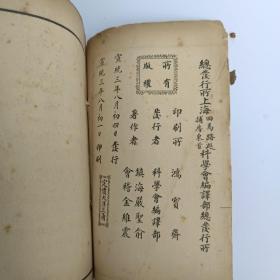 總發行所上海四馬路㢠東首科學會編譯部總發行所
印刷所 鴻寶齋
發行者 科學會編譯部
著作者 鎮海嚴聖俞
會稽金維震
所有
版權
宣統三年八月初四日發行
宣統三年八月初一日印刷